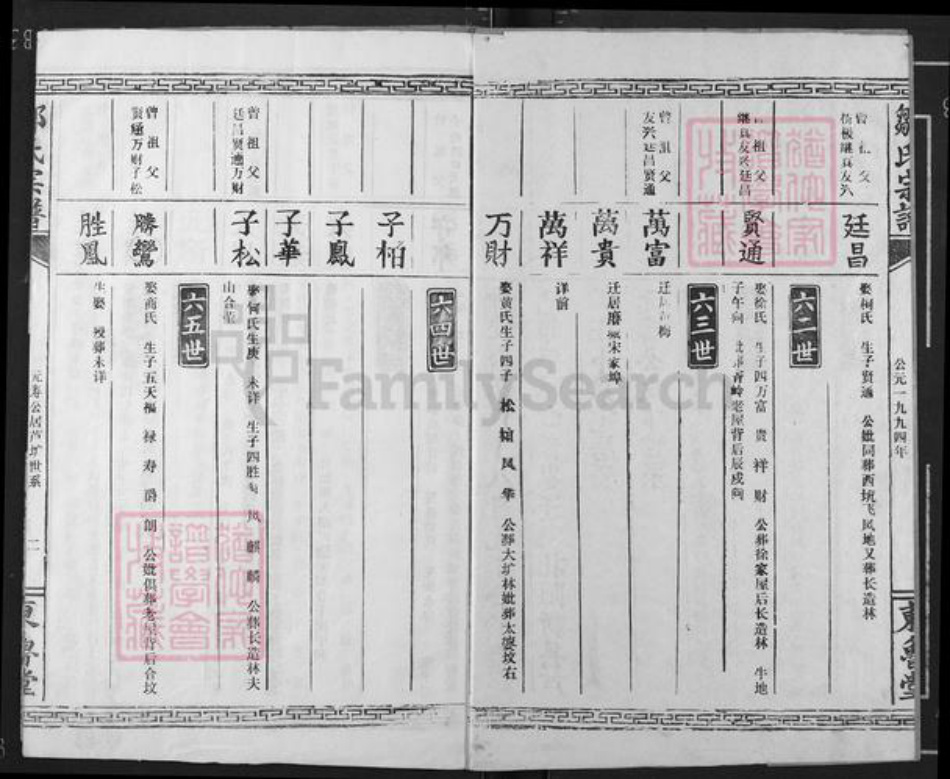 鄒氏宗譜
公元一九九四年
東魯堂
曾祖父
继真友兴
廷昌
娶柯氏 生子贤通 公妣同葬西坑飞凤地又葬长造林
六二世
曾祖父
继真友兴廷昌
賢通
娶徐氏 生子四万富 贵 祥 财 公葬徐家屋后长造林 牛地
子午向 老屋背后辰戌向
六三世
曾祖父
友兴廷昌贤通
萬富
迁居 梅
萬貴
迁居 宋家埠
萬祥
详前
万財
娶黄氏生子四子 松 柏 凤 华 公葬大圹林妣葬太婆坟右
六四世
子柏
子鳳
子華
曾祖父
廷昌贤通万财
子松
娶何氏生庚 未详 生子四胜 凤 麒 麟 公葬长造林夫
山合葬
六五世
曾祖父
贤通万财子松
騰鸞
娶商氏 生子五天福 禄 寿 爵 朗 公妣俱葬老屋背后合坟
胜鳳
生娶 殁葬未详
鄒氏宗譜
元寿公居芦圹世系
二
東魯堂
FamilySearch